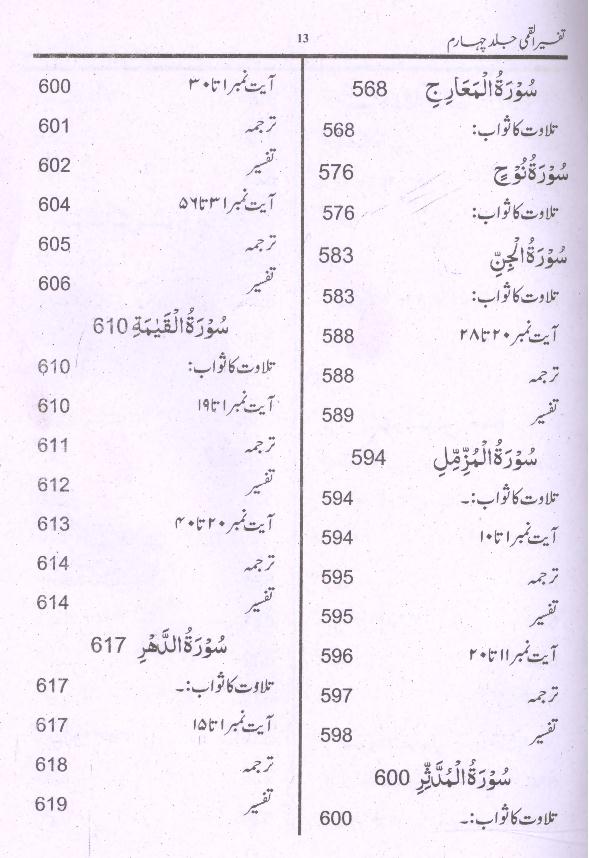 تفسیر القمی جلد چہارم 13
سُوْرَةُ الْمَعَارِجِ 568
تلاوت کا ثواب: 568
سُوْرَةُ نُوْحٍ 576
تلاوت کا ثواب: 576
سُوْرَةُ الْجِنِّ 583
تلاوت کا ثواب: 583
آیت نمبر ۲۰ تا ۲۸ 588
ترجمہ 588
تفسیر 589
سُوْرَةُ الْمُزَّمِّلِ 594
تلاوت کا ثواب:۔ 594
آیت نمبر ۱ تا ۱۰ 594
ترجمہ 595
تفسیر 595
آیت نمبر ۱۱ تا ۲۰ 596
ترجمہ 597
تفسیر 598
سُوْرَةُ الْمُدَّثِّرِ 600
تلاوت کا ثواب:۔ 600
آیت نمبر ۱ تا ۳۰ 600
ترجمہ 601
تفسیر 602
آیت نمبر ۳۱ تا ۵۶ 604
ترجمہ 605
تفسیر 606
سُوْرَةُ الْقَيٰمَةِ 610
تلاوت کا ثواب: 610
آیت نمبر ۱ تا ۱۹ 610
ترجمہ 611
تفسیر 612
آیت نمبر ۲۰ تا ۴۰ 613
ترجمہ 614
تفسیر 614
سُوْرَةُ الدَّهْرِ 617
تلاوت کا ثواب:۔ 617
آیت نمبر ۱ تا ۱۵ 617
ترجمہ 618
تفسیر 619